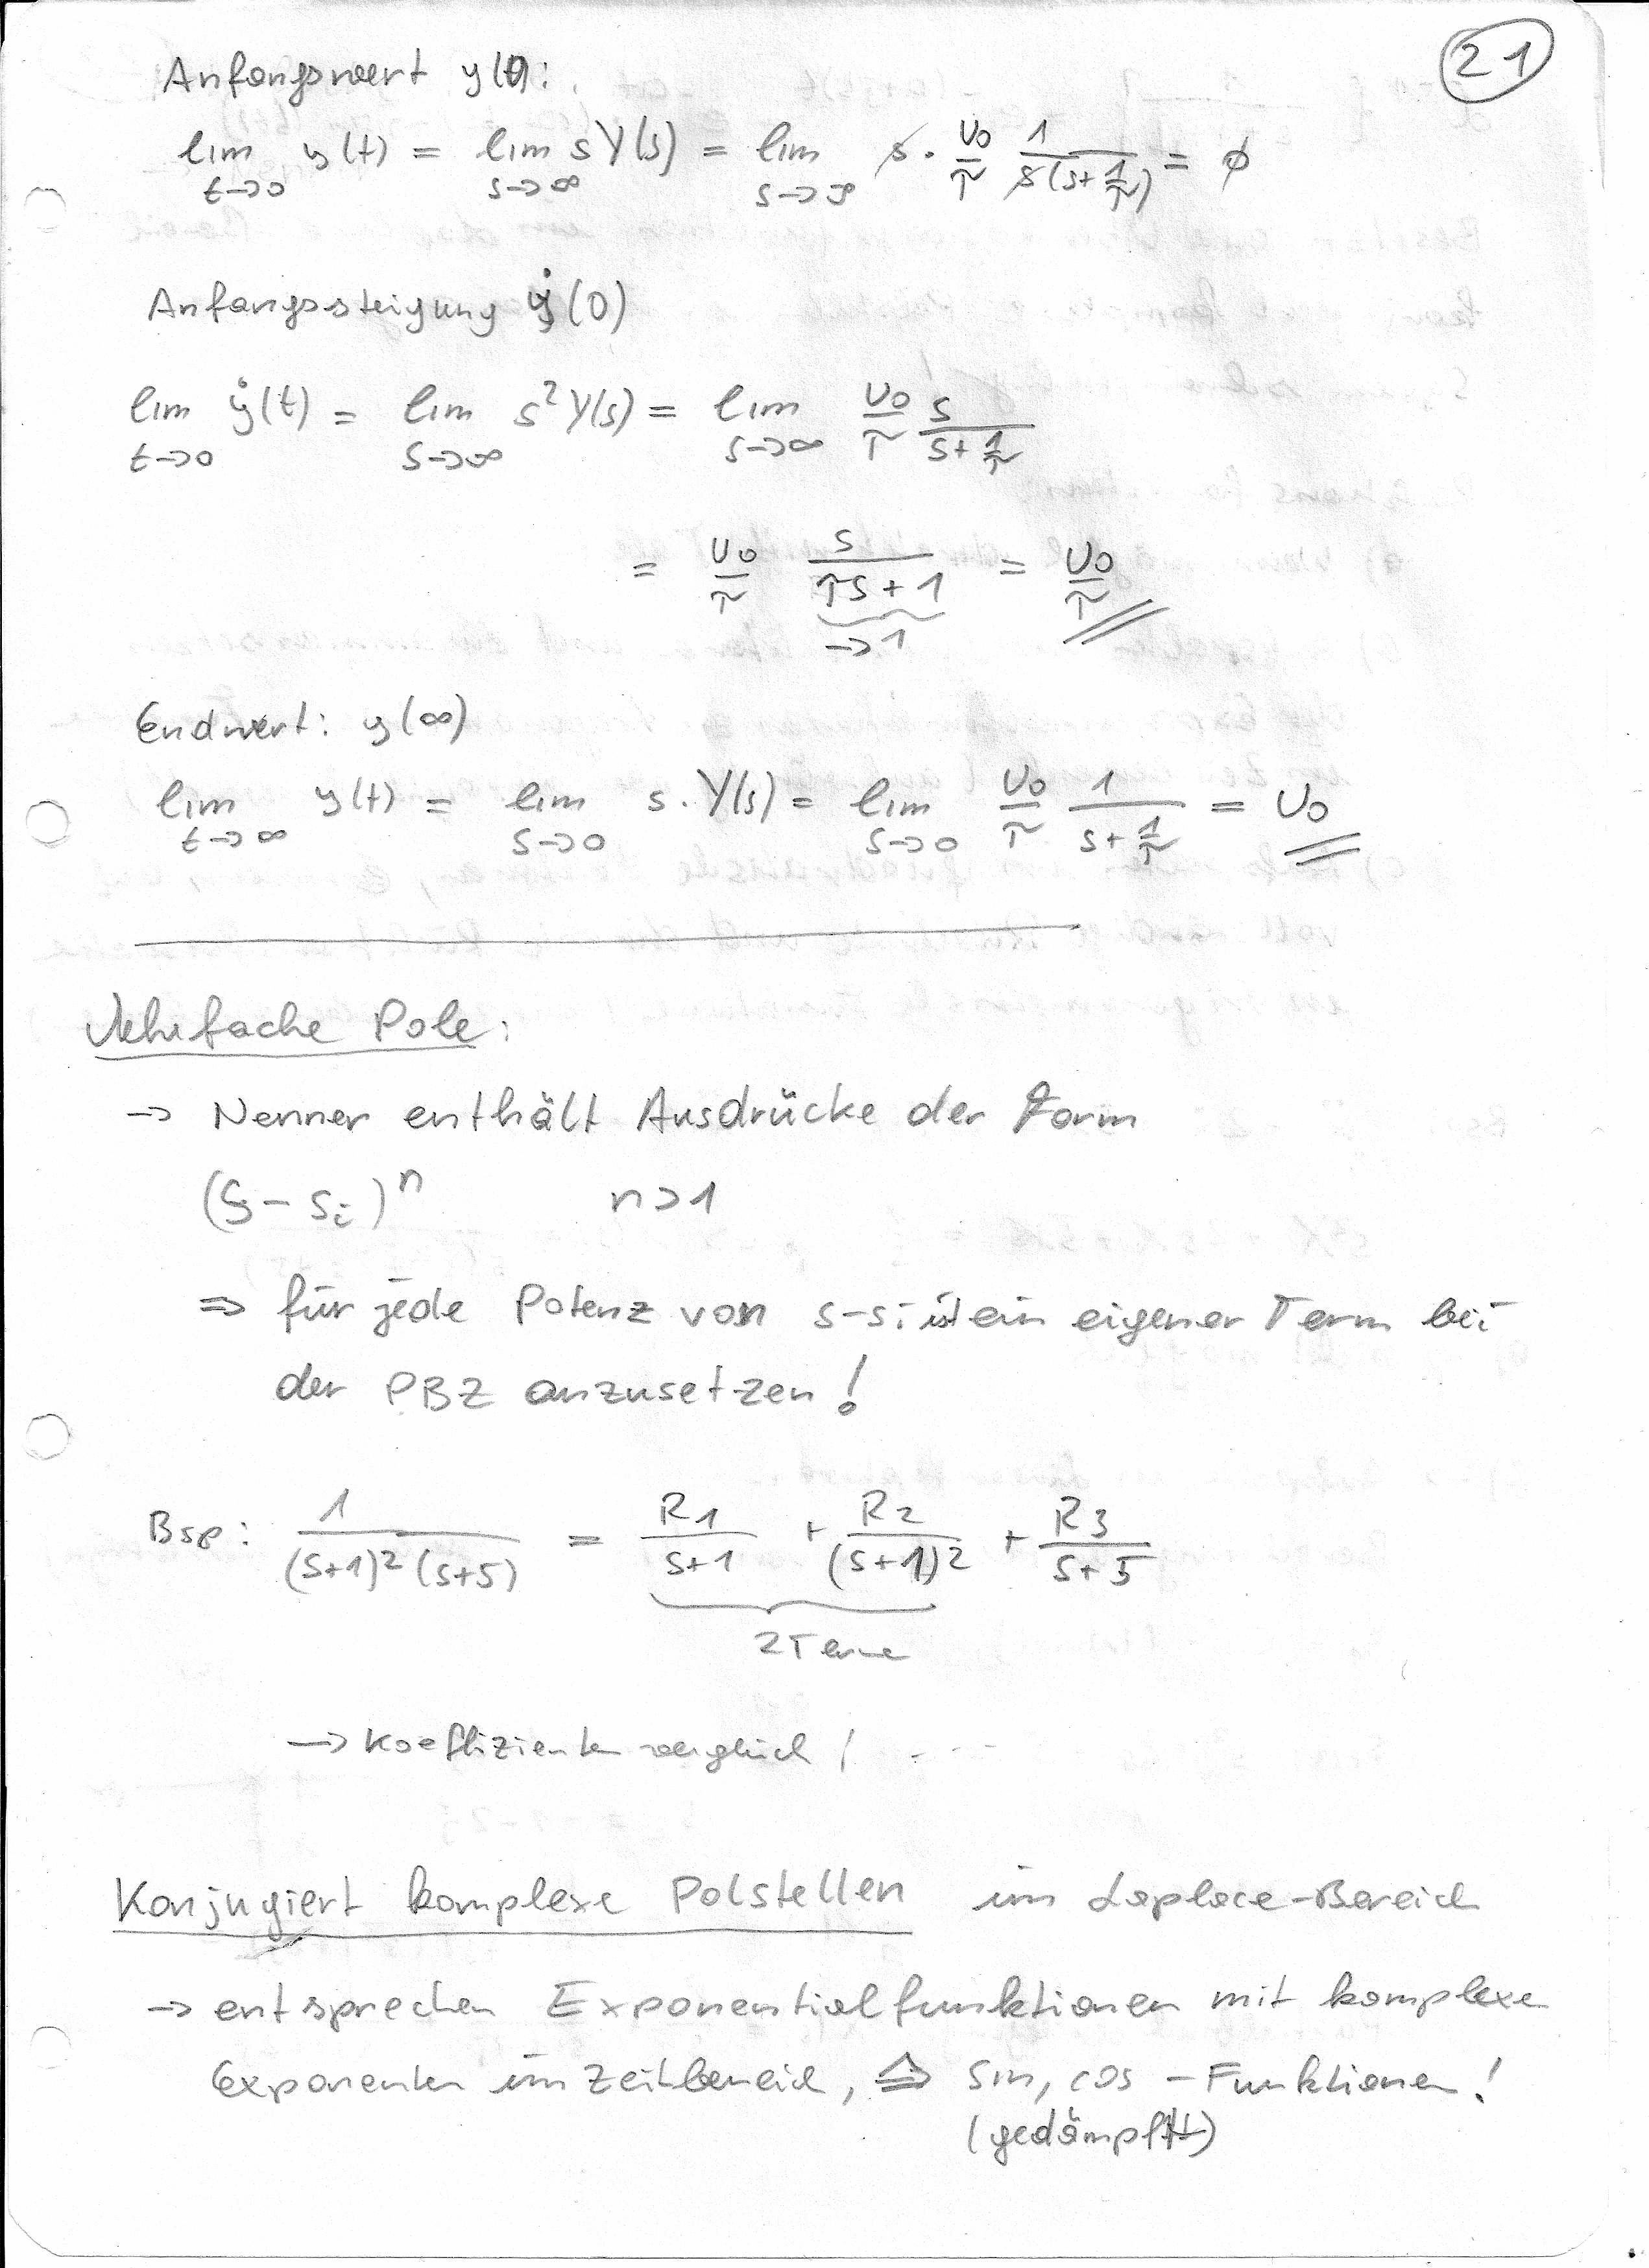 21
Anfangswert y(0):
lim t→0 y(t) = lim s→∞ sY(s) = lim s→∞ s · U0/τ 1/(s(s+1/τ)) = ϕ
Anfangssteigung ẏ(0)
lim t→0 ẏ(t) = lim s→∞ s²Y(s) = lim s→∞ U0/τ s/(s+1/τ)
= U0/τ s/(τs+1) = U0/τ
→1
Endwert: y(∞)
lim t→∞ y(t) = lim s→0 s·Y(s) = lim s→0 U0/τ 1/(s+1/τ) = U0
Mehrfache Pole:
→ Nenner enthält Ausdrücke der Form
(s-si)^n n>1
⇒ für jede Potenz von s-si ist ein eigener Term bei
der PBZ anzusetzen!
Bsp: 1/((s+1)²(s+5)) = R1/(s+1) + R2/(s+1)² + R3/(s+5)
2 Terme
→ Koeffizientenvergleich! ....
Konjugiert komplexe Polstellen im Laplace-Bereich
→ entsprechen Exponentialfunktionen mit komplexen
Exponenten im Zeitbereich, ≙> sin, cos - Funktionen!
(gedämpft)